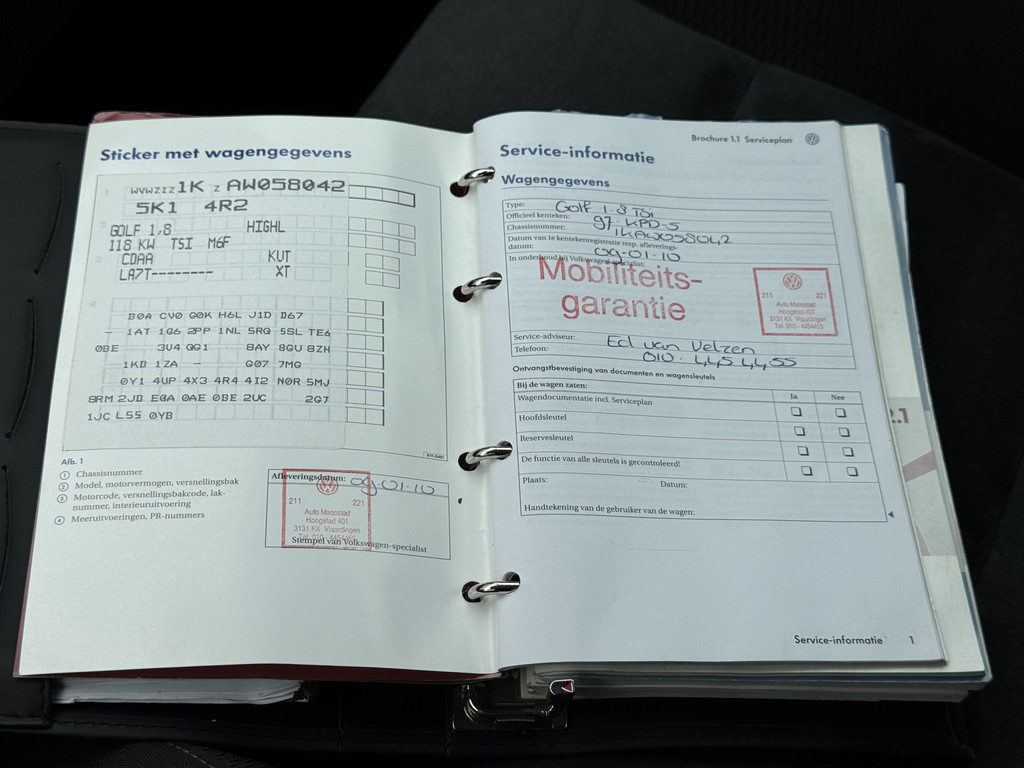 Sticker met wagengegevens
1 WVWZZZ1K Z AW058042
5K1 4R2
GOLF 1.8 HIGHL
118 KW TSI M6F
CDAA KUT
LA7T-------- XT
B0A CV0 G0K H6L J1D D67
- 1AT 1G6 2PP 1NL 5RQ 5SL TE6
0BE 3U4 QG1 8AY 8GU 8ZH
-1KB 1ZA - G07 7MG
0Y1 4UP 4X3 4R4 4I2 N0R 5MJ
8RM 2JB E0A 0AE 0BE 2UC 2G7
1JC L55 0YB
Afb. 1
① Chassisnummer
② Model, motorvermogen, versnellingsbak
③ Motorcode, versnellingsbakcode, lak-
nummer, interieuruitvoering
④ Meeruitvoeringen, PR-nummers
Afleveringsdatum: 09-01-10
211 221
Auto Maasstad
Hoogstad 401
3131 KX Vlaardingen
Tel. 010 - 4454455
Stempel van Volkswagen-specialist
Brochure 1.1 Serviceplan
Service-informatie
Wagengegevens
Type: Golf 1.8 TSi
Officieel kenteken: 97-KPD-5
Chassisnummer: 1KAW058042
Datum van 1e kentekenregistratie resp. afleverings-
datum: 09-01-10
In onderhoud bij Volkswagen-specialist:
Mobiliteits-
garantie
211 221
Auto Maasstad
Hoogstad 401
3131 KX Vlaardingen
Tel. 010 - 4454455
Service-adviseur: Ed van Velzen
Telefoon: 010-4454455
Ontvangstbevestiging van documenten en wagensleutels
Bij de wagen zaten: Ja Nee
Wagendocumentatie incl. Serviceplan
Hoofdsleutel
Reservesleutel
De functie van alle sleutels is gecontroleerd!
Plaats: Datum:
Handtekening van de gebruiker van de wagen:
Service-informatie 1
2.1